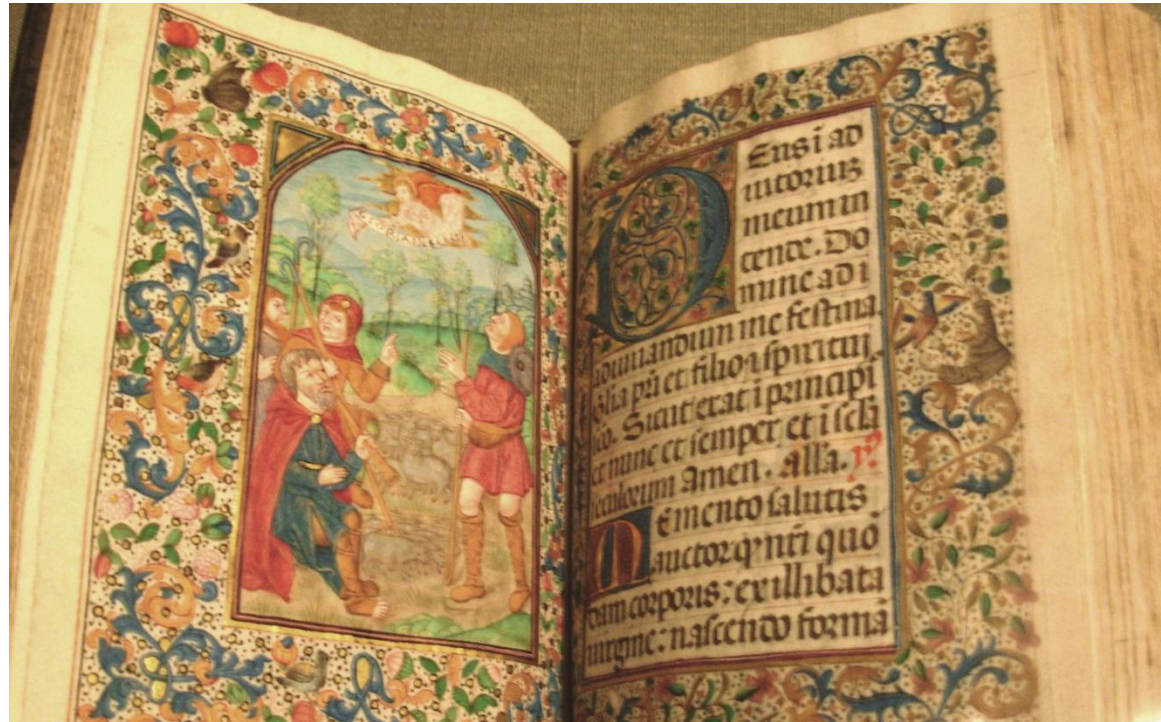 Deus i ad
iutoriuz
meum in
tende. Do
mine ad i
adiuuandum me festina.
Glia pri et filio i spiritui
sco. Sicut erat i principi
et nunc et semper et i secla
seculorum Amen. Alla. ymº
Memento salutis
auctor qƺ nri quō
dam corporis: ex illibata
uirgine: nascendo formā